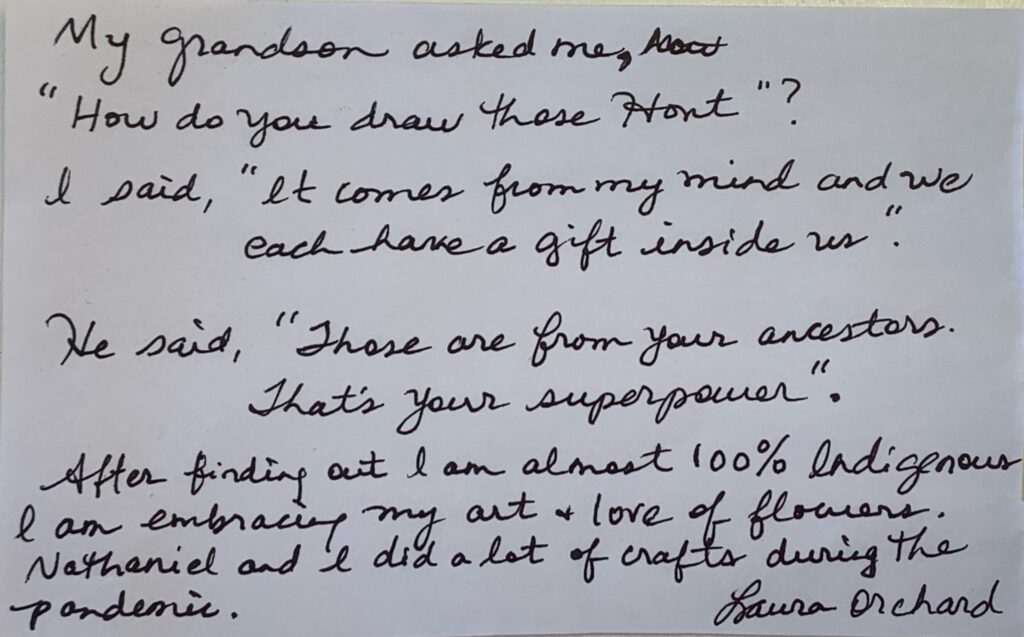 My grandson asked me,
"How do you draw those Hont"?
I said, "It comes from my mind and we
each have a gift inside us".
He said, "Those are from your ancestors.
That's your superpower".
After finding out I am almost 100% Indigenous
I am embracing my art + love of flowers.
Nathaniel and I did a lot of crafts during the
pandemic.
Laura Orchard